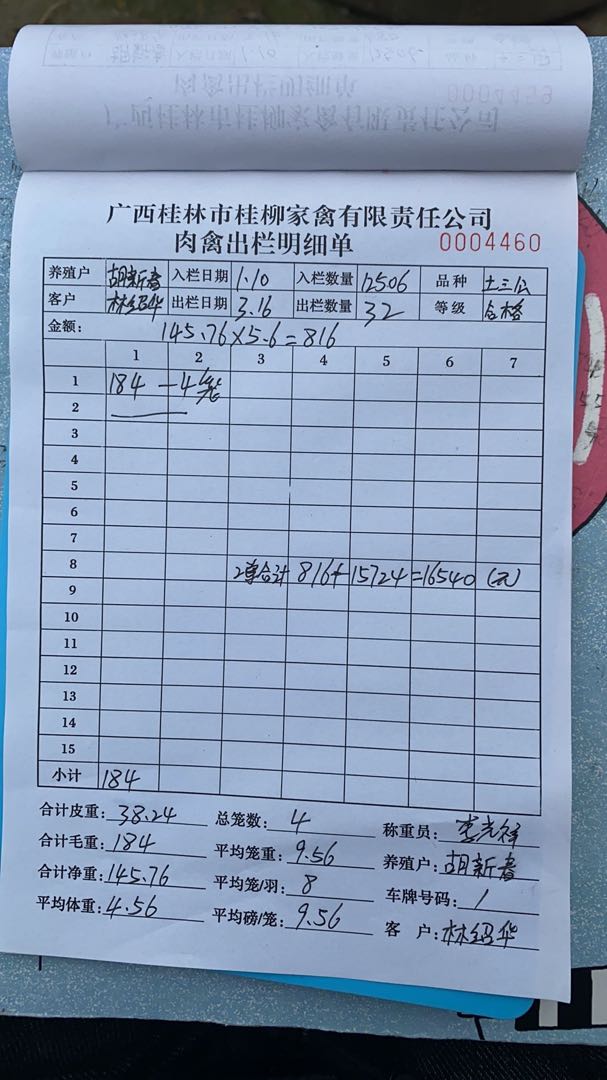 广西桂林市桂柳家禽有限责任公司
肉禽出栏明细单 0004460
养殖户 胡新春 入栏日期 1.10 入栏数量 12506 品种 土三公
客户 林绍华 出栏日期 3.16 出栏数量 32 等级 合格
金额: 145.76×5.6=816
1 2 3 4 5 6 7
1 184 — 4笼
2
3
4
5
6
7
8 2单合计 816+15724=16540 (元)
9
10
11
12
13
14
15
小计 184
合计皮重: 38.24 总笼数: 4 称重员:
合计毛重: 184 平均笼重: 9.56 养殖户: 胡新春
合计净重: 145.76 平均笼/羽: 8 车牌号码: 1
平均体重: 4.56 平均磅/笼: 9.56 客 户: 林绍华